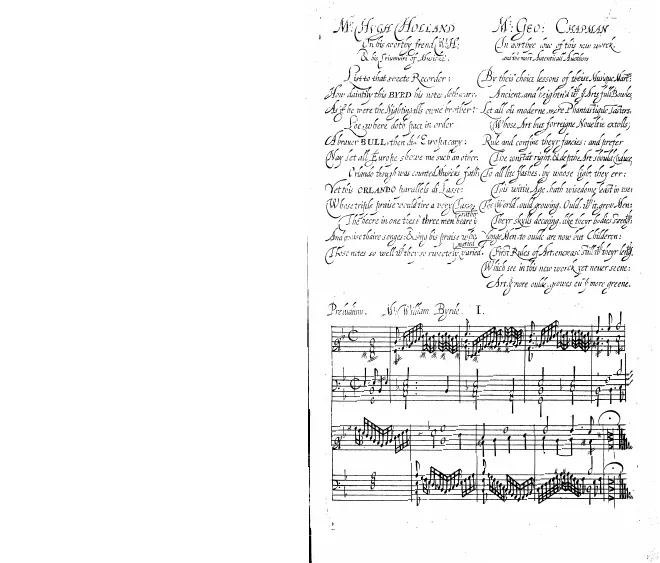 Mr. HVGH HOLLAND
On his worthy frend W: H:
& his Triumviri of Musicke.
List to that sweete Recorder;
How daintily this BYRD his notes doth vary,
As if he were the Nightingalls owne brother!
Loe, where doth pace in order
A braver BULL, then did Europa cary:
Nay let all Europe showe me such an other.
Orlando though was counted Musicks father;
Yet this ORLANDO parallels di Lasso:
Whose triple praise would tire a very Tasso
The heere in one these three men heare
And praise thaire songes: & sing his praise who
Those notes so well & they so sweetely varied.
Mr. GEO: CHAPMAN
In worthye love of this new worck
and the most Autenticall Aucthors
By theis choice lessons of theise Musique Masters
Ancient, and heightn'd Arts full Bowles,
Let all our moderne, mere Phantastique Tasters,
Whose Art but forreigne Noveltie extolls,
Rule and confine theyr fancies: and prefer
The constant right & depthe Art should produce,
To all lite flashes, by whose light they err:
This wittie Age, hath wisedome least in use:
The World, ould growing, Ould, with it grow Men:
Theyr skylls decaying, like theyr bodies strengthe,
Yonge Men, to oulde are now but Childeren:
First Rules of Art, encrease still wth theyr lengthe
Which see in this new worck yet never seene:
Art, more oulde, growes ever more greene.
Preludium. Mr. William Byrde. I.